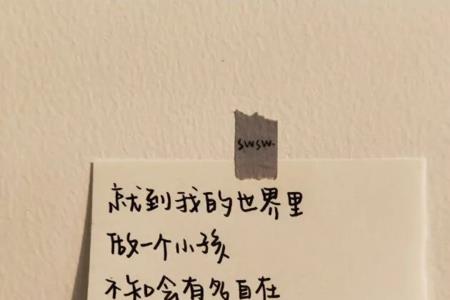 swsw.
就到我的世界里
做一个小孩
不知会有多自在